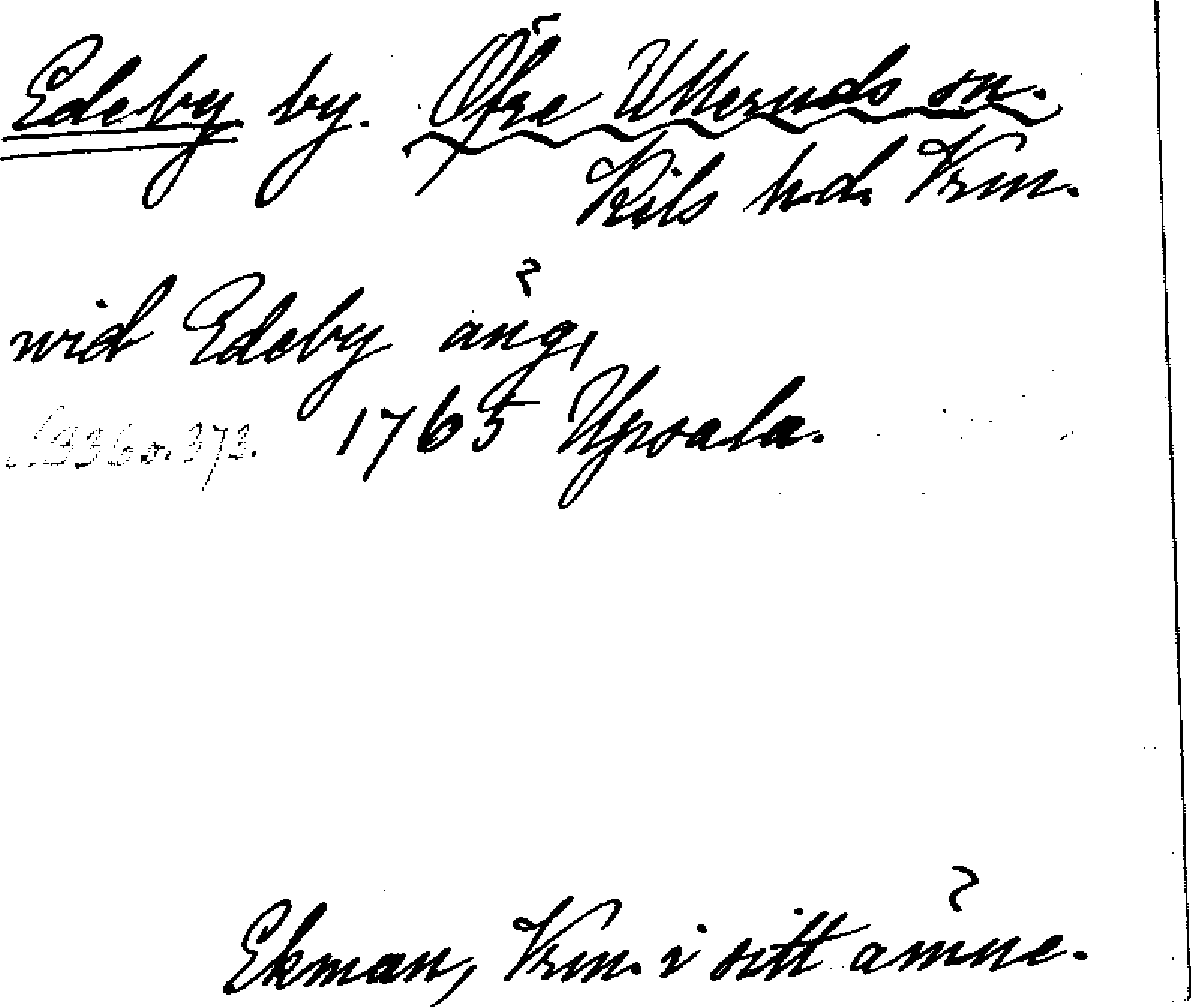 Edeby by. Öfre Ulleruds sn.
Kils hd. Vrm.
wid Edeby äng,
1765 Upsala.
s. 336 o. 373.
Ekman, Vrm. i sitt ämne.